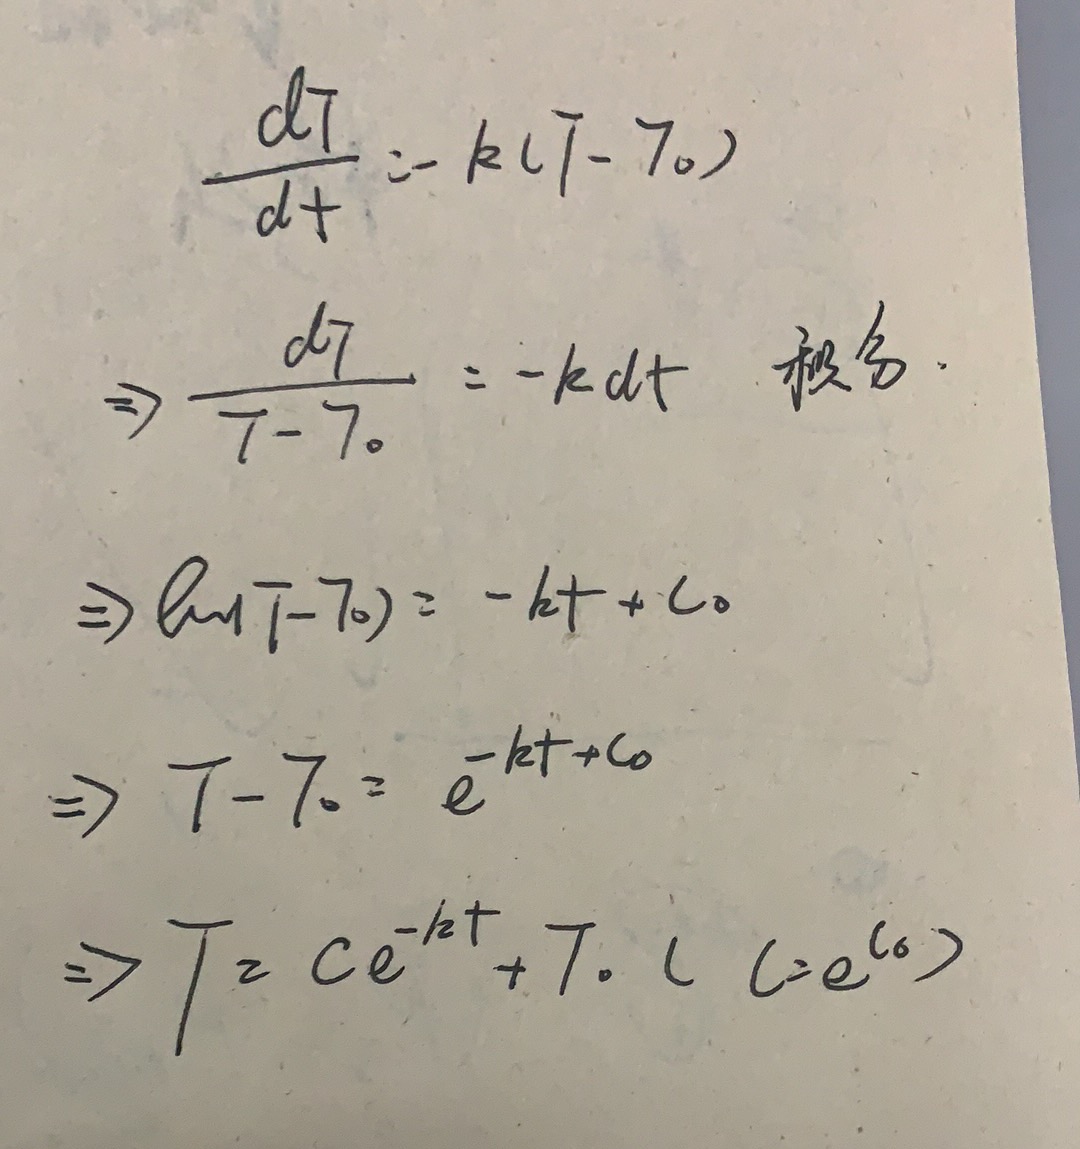 dT/dt = -k(T-T₀)
⇒ dT/(T-T₀) = -kdt 积分.
⇒ ln(T-T₀) = -kt + C₀
⇒ T-T₀ = e^(-kt+C₀)
⇒ T = Ce^(-kt) + T₀ ( C=e^(C₀) )